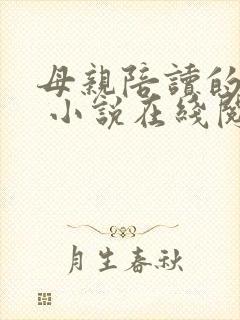 母親陪讀的
小說在綫閱
月生春秋